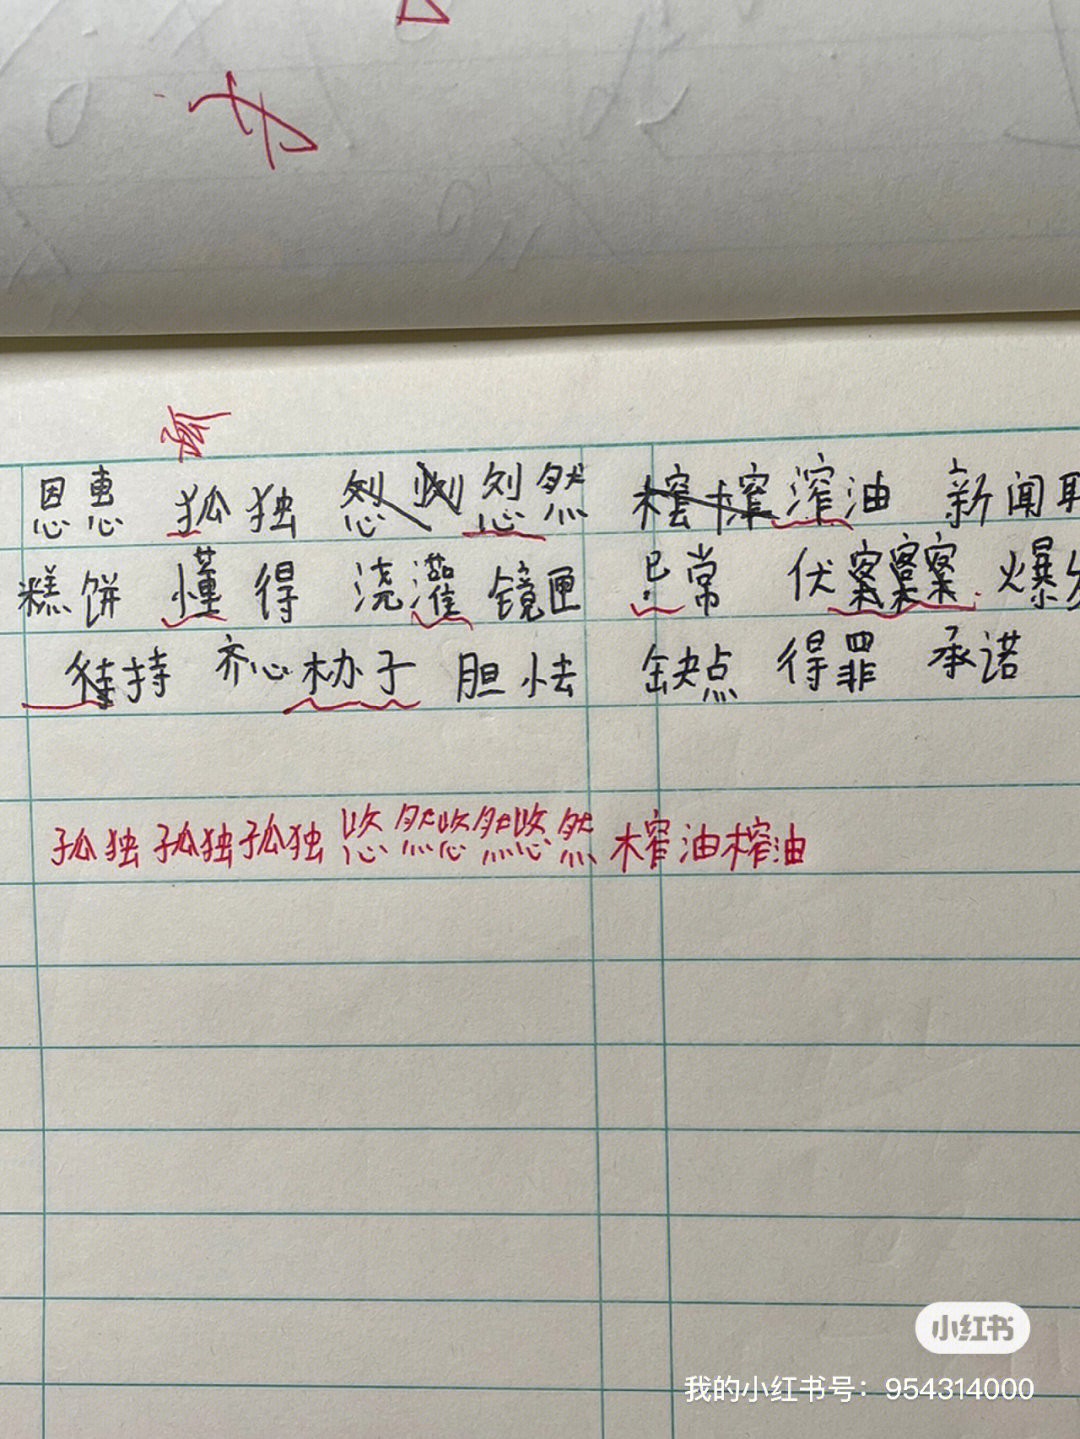 恩惠 孤独 然 油 新闻
糕饼 懂得 浇灌 镜匣 常 伏 爆
持 齐心 子 胆怯 缺点 得罪 承诺
孤独孤独孤独 悠然悠然悠然 榨油榨油
小红书
我的小红书号：954314000